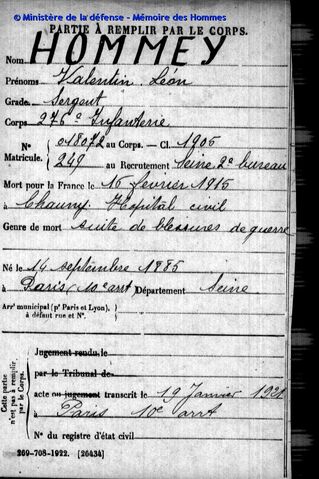 © Ministère de la défense - Mémoire des Hommes
PARTIE À REMPLIR PAR LE CORPS.
Nom HOMMEY
Prénoms Valentin Léon
Grade Sergent
Corps 276e Infanterie
N° 018072 au Corps. — Cl. 1905
Matricule. 249 au Recrutement Seine 2e bureau
Mort pour la France le 15 février 1915
à Chauny Hôpital civil
Genre de mort suite de blessures de guerre
Né le 14 septembre 1885
à Paris (10e arrt) Département Seine
Arrt municipal (pr Paris et Lyon),
à défaut rue et N°.
Cette partie n'est pas à remplir par le Corps.
Jugement rendu le
par le Tribunal de
acte ou jugement transcrit le 19 Janvier 1921
à Paris 10e arrt
N° du registre d'état civil
269-708-1922. [26434]